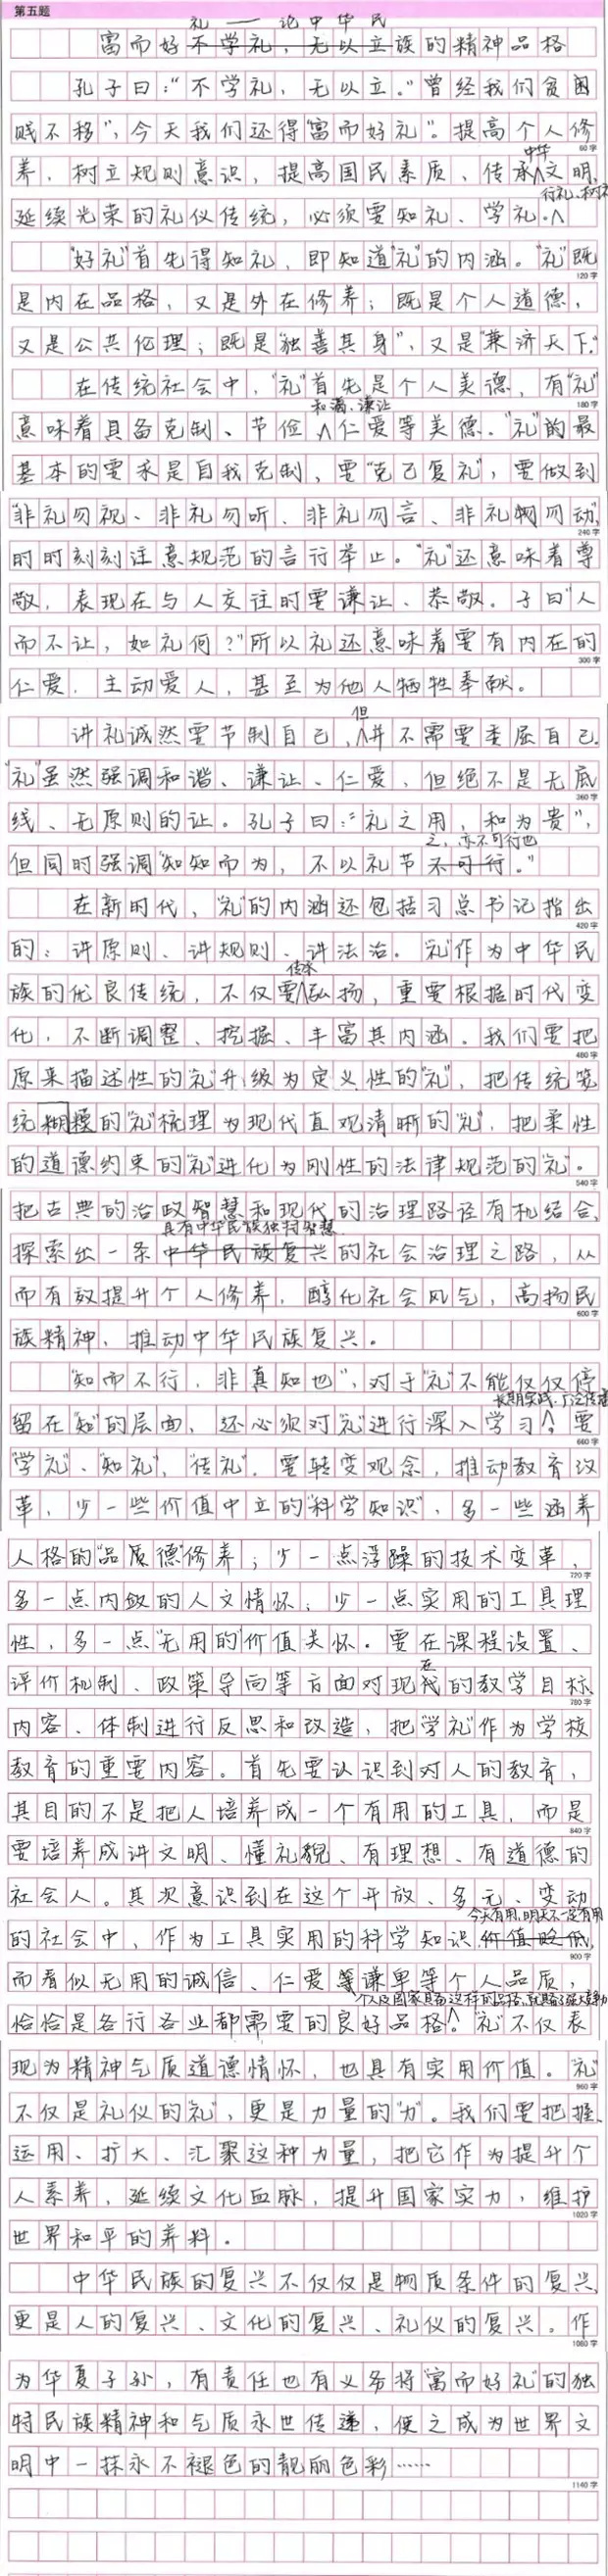 第五题
富而好礼——论中华民族的精神品格
孔子曰：“不学礼，无以立。”曾经我们贫困
贱不移”，今天我们还得“富而好礼”。提高个人修
60 字
养，树立规则意识，提高国民素质、传承中华文明，
延续光荣的礼仪传统，必须要知礼、学礼、行礼、
“好礼”首先得知礼，即知道“礼”的内涵。“礼”既
120 字
是内在品格，又是外在修养；既是个人道德，
又是公共伦理；既是“独善其身”，又是“兼济天下。”
在传统社会中，“礼”首先是个人美德，有“礼”
180 字
意味着具备克制、节俭、和满、谦让、仁爱等美德。“礼”的最
基本的要求是自我克制，要“克己复礼”，要做到
“非礼勿视、非礼勿听、非礼勿言、非礼勿动”，
240 字
时时刻刻注意规范的言行举止。“礼”还意味着尊
敬，表现在与人交往时要谦让、恭敬。子曰“人
而不让，如礼何？”所以礼还意味着要有内在的
300 字
仁爱，主动爱人，甚至为他人牺牲奉献。
讲礼诚然要节制自己，但并不需要委屈自己。
“礼”虽然强调和谐、谦让、仁爱，但绝不是无底
360 字
线、无原则的让。孔子曰：“礼之用，和为贵”，
但同时强调“知和而为，不以礼节之，亦不可行也。”
在新时代，“礼”的内涵还包括习总书记指出
420 字
的：讲原则、讲规则、讲法治。“礼”作为中华民
族的优良传统，不仅要传承弘扬，重要根据时代变
化，不断调整、挖掘、丰富其内涵。我们要把
480 字
原来描述性的“礼”升级为定义性的“礼”，把传统笼
统模糊的“礼”梳理为现代直观清晰的“礼”，把柔性
的道德约束的“礼”进化为刚性的法律规范的“礼”。
540 字
把古典的治政智慧和现代的治理路径有机结合，
探索出一条具有中华民族独特智慧的社会治理之路，从
而有效提升个人修养，醇化社会风气，高扬民
600 字
族精神，推动中华民族复兴。
“知而不行，非真知也”，对于“礼”不能仅仅停
留在“知”的层面，还必须对“礼”进行深入学习、长期实践、广泛传播。要
660 字
“学礼”、“知礼”，“传礼”。要转变观念，推动教育改
革，少一些价值中立的“科学知识”，多一些涵养
人格的“品质德”修养；少一点浮躁的技术变革，
720 字
多一点内敛的人文情怀；少一点实用的工具理
性，多一点“无用的”价值关怀。要在课程设置、
评价机制、政策导向等方面对现在的教学目标、
780 字
内容、体制进行反思和改造，把“学礼”作为学校
教育的重要内容。首先要认识到对人的教育，
其目的不是把人培养成一个有用的工具，而是
840 字
要培养成讲文明、懂礼貌、有理想、有道德的
社会人。其次意识到在这个开放、多元、变动
的社会中，作为工具实用的科学知识今天有用，明天不一定有用，
900 字
而看似无用的诚信、仁爱、谦卑等个人品质，
恰恰是各行各业都需要的良好品格。个人及国家具备这样的品格，就具备了强大力量。“礼”不仅表
现为精神气质道德情怀，也具有实用价值。“礼”
960 字
不仅是礼仪的“礼”，更是力量的“力”。我们要把握、
运用、扩大、汇聚这种力量，把它作为提升个
人素养，延续文化血脉，提升国家实力，维护
1020 字
世界和平的养料。
中华民族的复兴不仅仅是物质条件的复兴，
更是人的复兴、文化的复兴、礼仪的复兴。作
1080 字
为华夏子孙，有责任也有义务将“富而好礼”的独
特民族精神和气质永世传递，使之成为世界文
明中一抹永不褪色的靓丽色彩……
1140 字